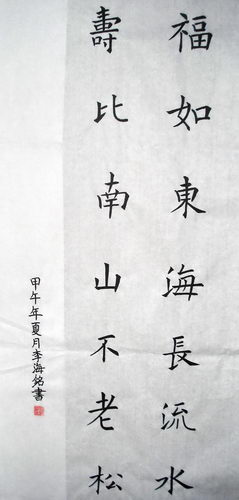 福如東海長流水
壽比南山不老松
甲午年夏月李海銘書